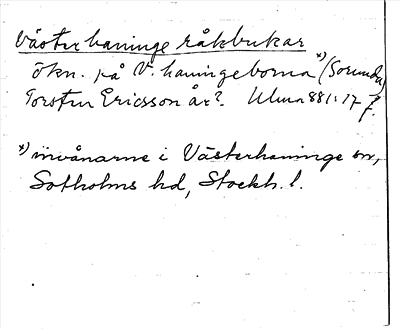 Västerhaninge råkbukar
ökn. på V. haningeborna *) (Sorunda)
Torsten Ericsson år?. Ulma 881:17 f.
*) invånarne i Västerhaninge sn,
Sotholms hd, Stockh. l.